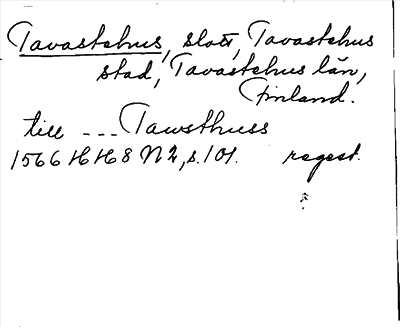 Tavastehus, slott, Tavastehus
stad, Tavastehus län,
Finland.
till --- Tawsthuss
1566 HH8 N2, s. 101. regest.